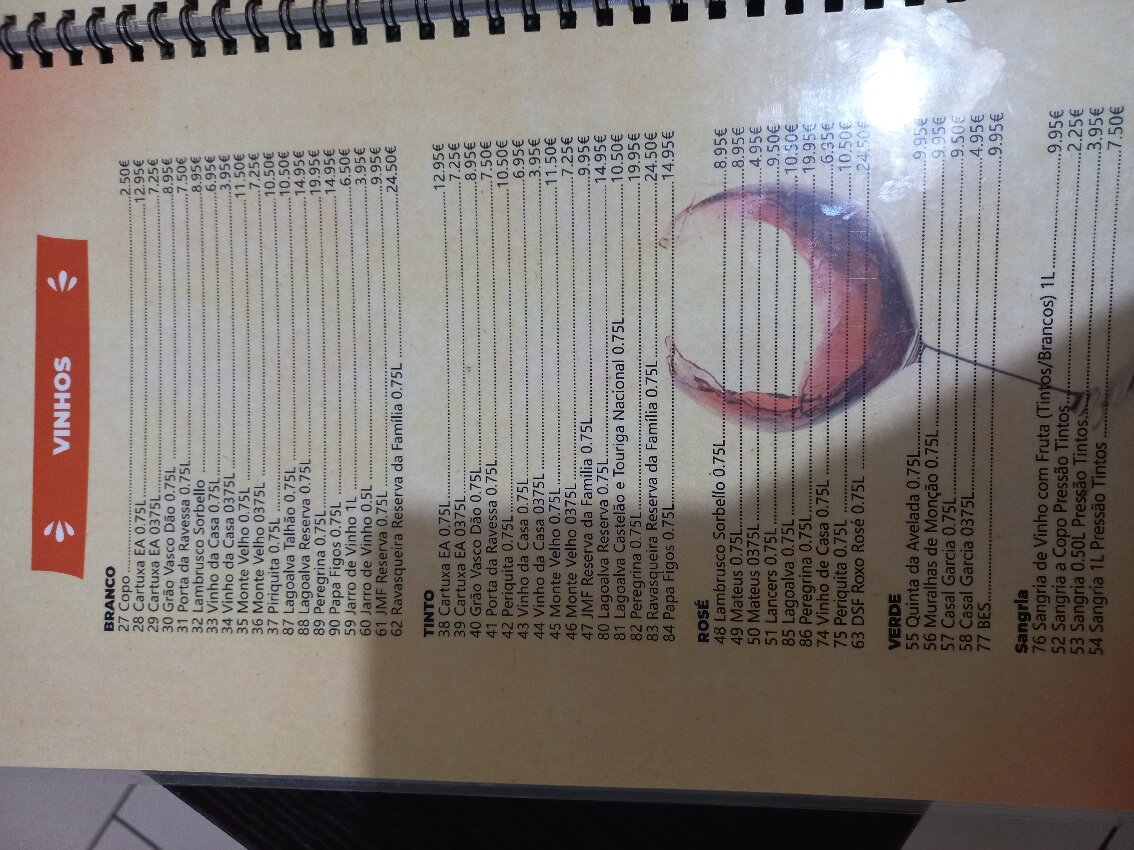 VINHOS
BRANCO
27 Copo 2.50€
28 Cartuxa EA 0.75L 12.95€
29 Cartuxa EA 0375L 7.25€
30 Grão Vasco Dão 0.75L 8.95€
31 Porta da Ravessa 0.75L 7.50€
32 Lambrusco Sorbello 8.95€
33 Vinho da Casa 0.75L 6.95€
34 Vinho da Casa 0375L 3.95€
35 Monte Velho 0.75L 11.50€
36 Monte Velho 0375L 7.25€
37 Piriquita 0.75L 10.50€
87 Lagoalva Talhão 0.75L 10.50€
88 Lagoalva Reserva 0.75L 14.95€
89 Peregrina 0.75L 19.95€
90 Papa Figos 0.75L 14.95€
59 Jarro de Vinho 1L 6.50€
60 Jarro de Vinho 0.5L 3.95€
61 JMF Reserva 0.75L 9.95€
62 Ravasqueira Reserva da Família 0.75L 24.50€
TINTO
38 Cartuxa EA 0.75L 12.95€
39 Cartuxa EA 0375L 7.25€
40 Grão Vasco Dão 0.75L 8.95€
41 Porta da Ravessa 0.75L 7.50€
42 Periquita 0.75L 10.50€
43 Vinho da Casa 0.75L 6.95€
44 Vinho da Casa 0375L 3.95€
45 Monte Velho 0.75L 11.50€
46 Monte Velho 0375L 7.25€
47 JMF Reserva da Família 0.75L 9.95€
80 Lagoalva Reserva 0.75L 14.95€
81 Lagoalva Castelão e Touriga Nacional 0.75L 10.50€
82 Peregrina 0.75L 19.95€
83 Ravasqueira Reserva da Família 0.75L 24.50€
84 Papa Figos 0.75L 14.95€
ROSÉ
48 Lambrusco Sorbello 0.75L 8.95€
49 Mateus 0.75L 8.95€
50 Mateus 0375L 4.95€
51 Lancers 0.75L 9.50€
85 Lagoalva 0.75L 10.50€
86 Peregrina 0.75L 19.95€
74 Vinho de Casa 0.75L 6.95€
75 Periquita 0.75L 10.50€
63 DSF Roxo Rosé 0.75L 24.50€
VERDE
55 Quinta da Avelada 0.75L 9.95€
56 Muralhas de Monção 0.75L 9.95€
57 Casal Garcia 0.75L 9.50€
58 Casal Garcia 0375L 4.95€
77 BES 9.95€
Sangria
76 Sangria de Vinho com Fruta (Tintos/Brancos) 1L 9.95€
52 Sangria a Copo Pressão Tintos 2.25€
53 Sangria 0.50L Pressão Tintos 3.95€
54 Sangria 1L Pressão Tintos 7.50€